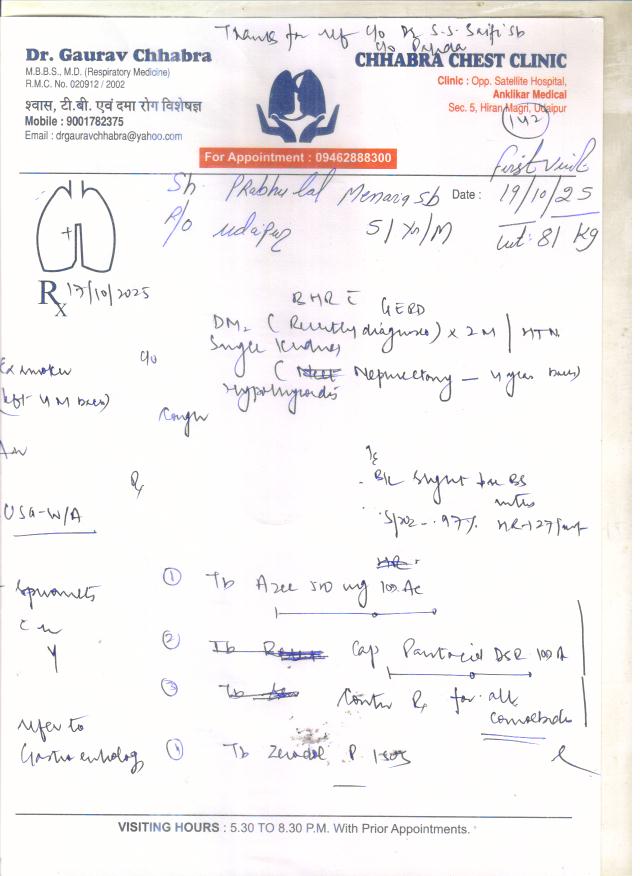 Thanks for ref c/o Dr S.S. Saifi sb
Dr. Gaurav Chhabra
M.B.B.S., M.D. (Respiratory Medicine)
R.M.C. No. 020912 / 2002
श्वास, टी.बी. एवं दमा रोग विशेषज्ञ
Mobile : 9001782375
Email : drgauravchhabra@yahoo.com
CHHABRA CHEST CLINIC
Clinic : Opp. Satellite Hospital,
Anklikar Medical
Sec. 5, Hiran Magri, Udaipur
142
For Appointment : 09462888300
First Visit
Sh. Prabhu lal Menaria sb Date : 19/10/25
R/o Udaipur 51 Yr/M wt: 81 Kg
Rx 17/10/2025
GERD
DM2 (Recently diagnosed) x 2M | HTN
c/o Single Kidney
Ex smoker (Nephrectomy - 4 years back)
(left 4 M back) Hypothyroidis
Cough
Rx
USG-W/A
SpO2 - 97% HR-127/mt
① Tb Azee 500 mg
② Cap Pantocid DSR
③ Contn Rx for all
comorbids
refer to
Gastroenterolog Tb Zerodol P
VISITING HOURS : 5.30 TO 8.30 P.M. With Prior Appointments.